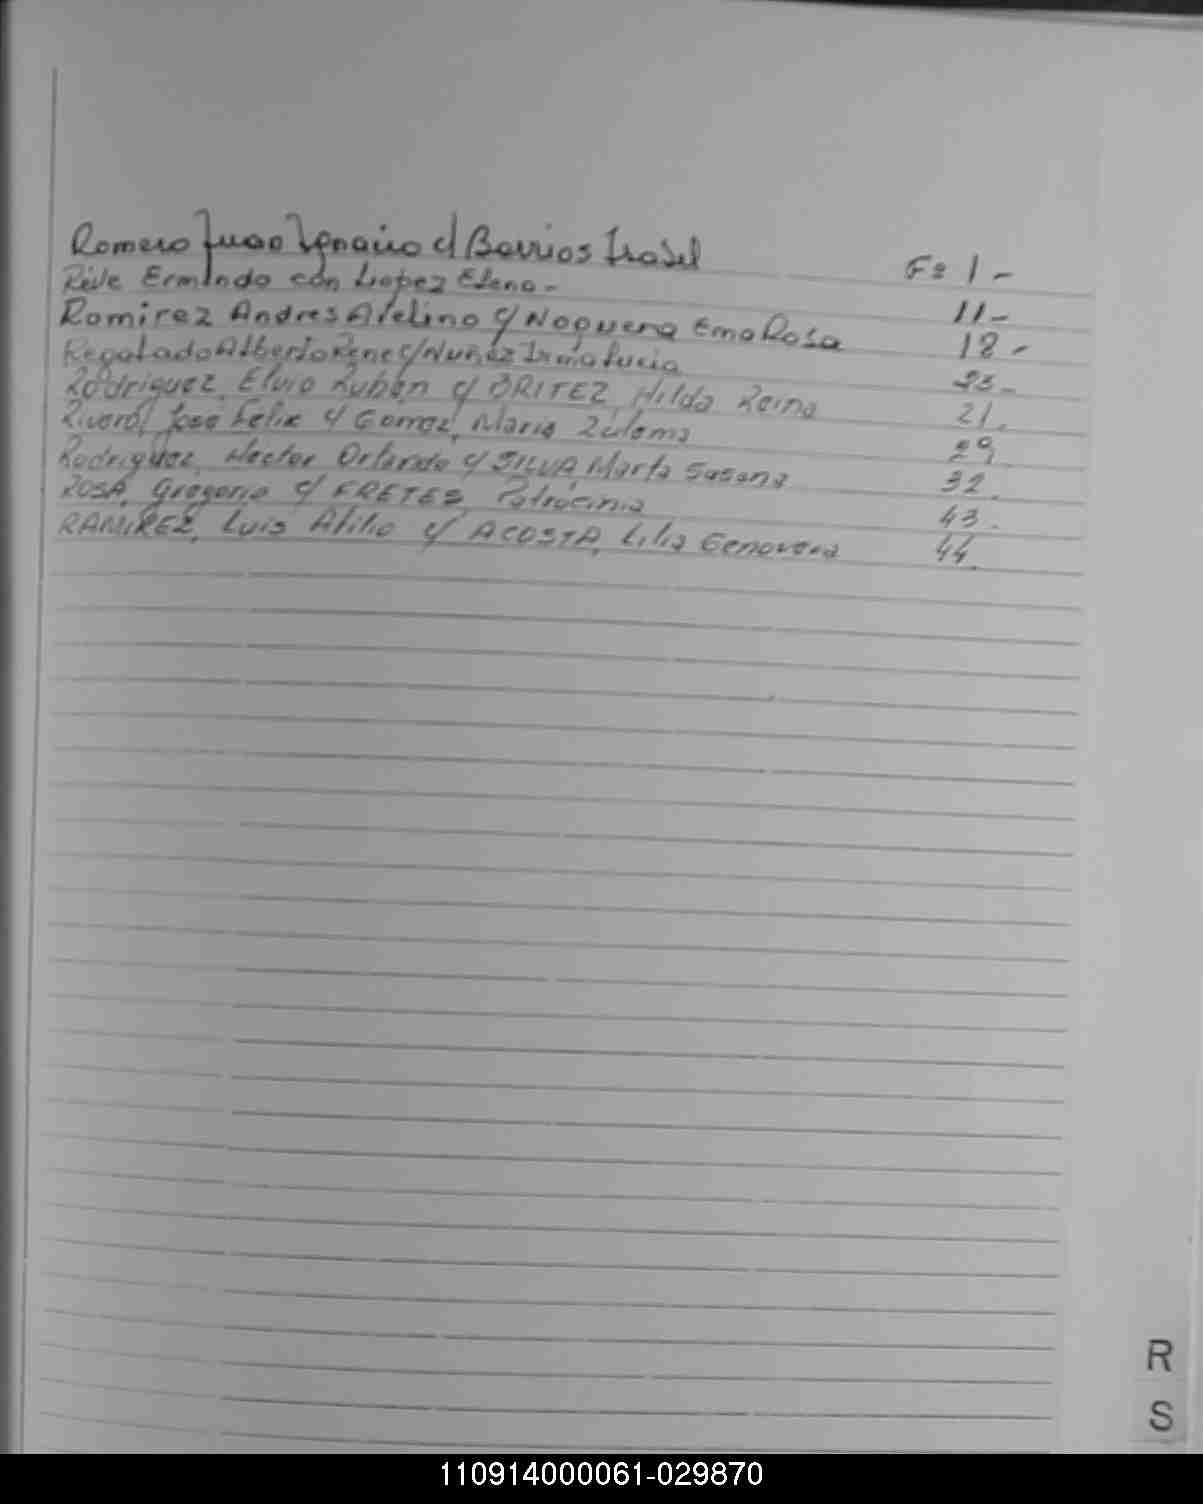 Romero Juan Ignacio c/ Barrios Isabel Fº 1-
Ermindo con Lopez Elena- 11-
Ramirez Andres Avelino c/ Noguera Ema Rosa 18-
Regalado Alberto Rene c/ Nuñez Irma Lucia
Rodriguez, Elvio Ruben c/ BRITEZ, Hilda Reina 21.
Rivero, Jose Felix c/ Gomez, Maria Zulema 29.
Rodriguez, Hector Orlando c/ SILVA, Marta Susana 32.
ROSA, Gregorio c/ FRETES, Patrocinia 43.
RAMIREZ, Luis Atilio c/ ACOSTA, Lilia Genoveva 44.
R
S
110914000061-029870